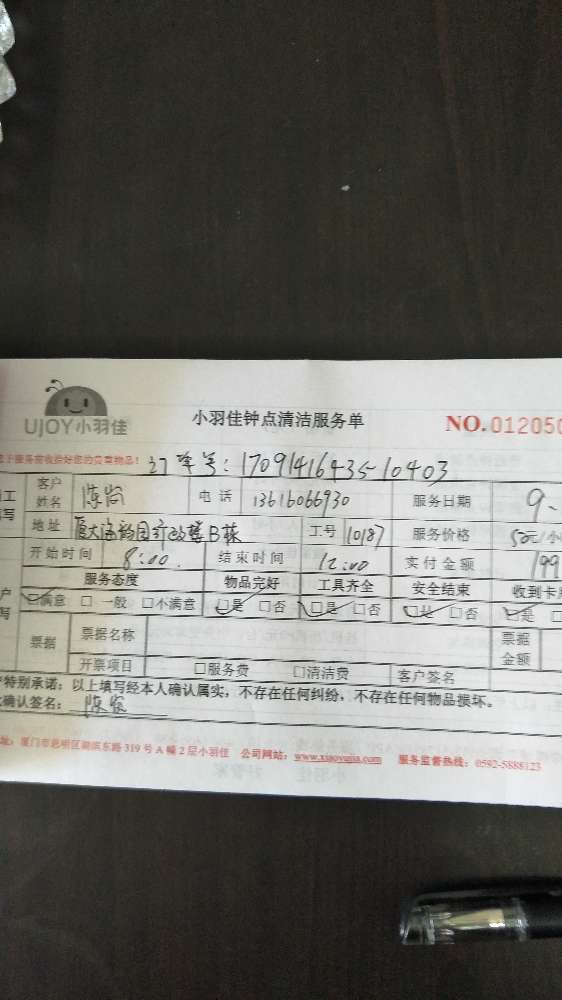 UJOY小羽佳
小羽佳钟点清洁服务单
NO.012050
服务前收拾好您的贵重物品! 订单号:17091416435-10403
客户姓名 陈 电话 13616066930 服务日期 9.
地址 厦大海韵园行政楼B栋 工号 10187 服务价格 50元/小
开始时间 8:00 结束时间 12:00 实付金额 199
服务态度 物品完好 工具齐全 安全结束 收到卡
☑满意 □一般 □不满意 ☑是 □否 ☑是 □否 ☑是 □否 ☑是 □
票据 票据名称 票据金额
开票项目 □服务费 □清洁费 客户签名
特别承诺:以上填写经本人确认属实,不存在任何纠纷,不存在任何物品损坏。
确认签名: 陈
址:厦门市思明区湖滨东路319号A幢2层小羽佳 公司网站:www.xiaoyujia.com 服务监督热线:0592-5888123